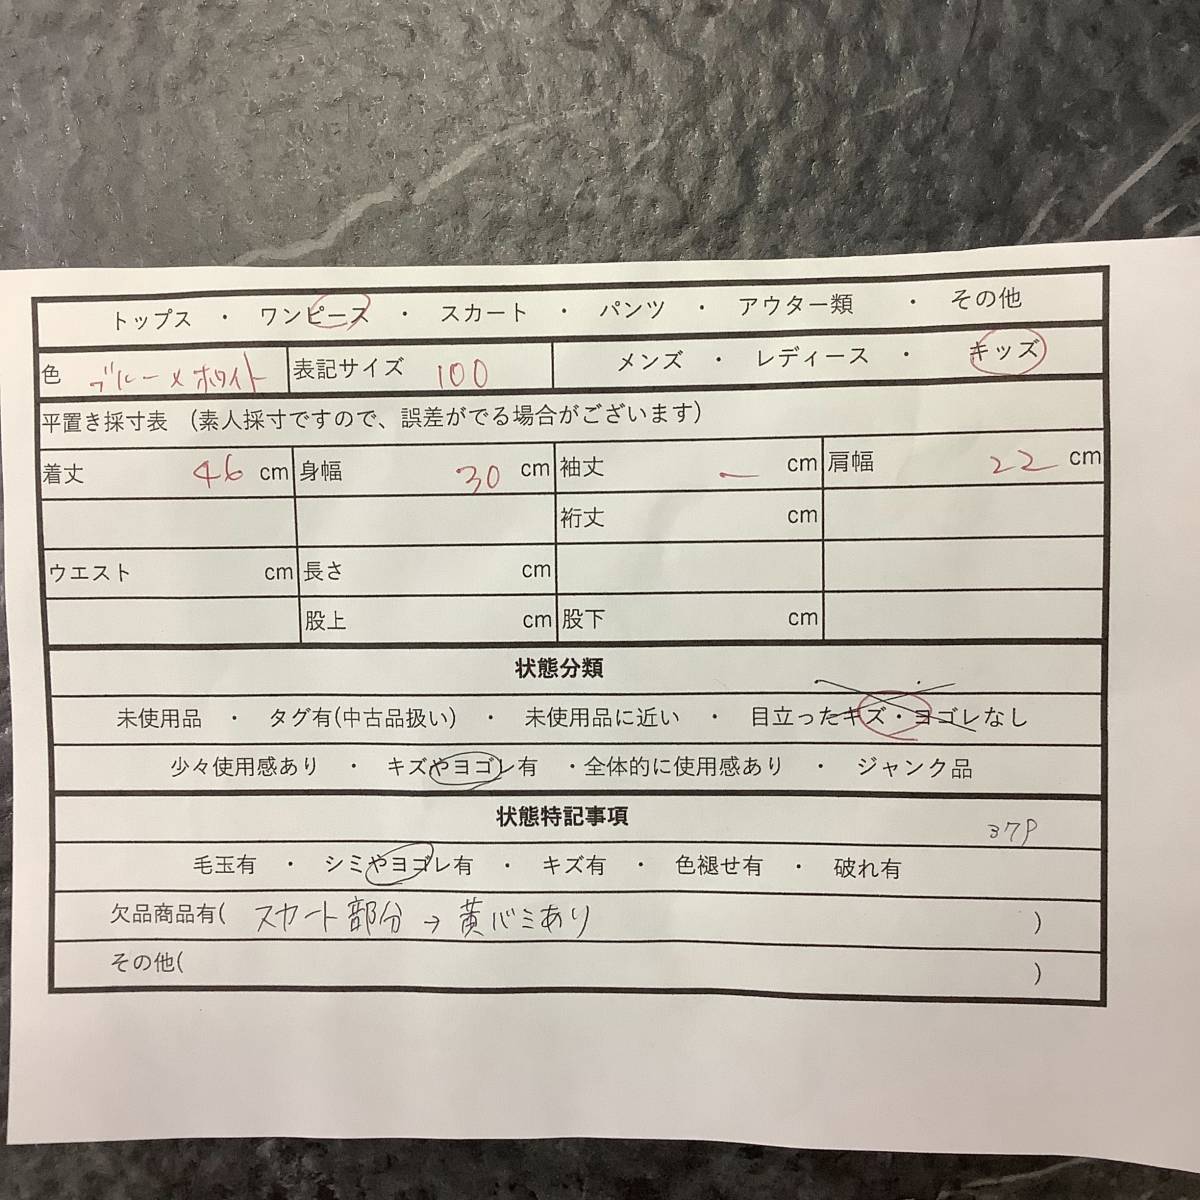 トップス ・ ワンピース ・ スカート ・ パンツ ・ アウター類 ・ その他
色 ブルー×ホワイト 表記サイズ 100 メンズ ・ レディース ・ キッズ
平置き採寸表 （素人採寸ですので、誤差がでる場合がございます）
着丈 46 cm 身幅 30 cm 袖丈 ー cm 肩幅 22 cm
裄丈 cm
ウエスト cm 長さ cm
股上 cm 股下 cm
状態分類
未使用品 ・ タグ有(中古品扱い) ・ 未使用品に近い ・ 目立ったキズ・ヨゴレなし
少々使用感あり ・ キズやヨゴレ有 ・全体的に使用感あり ・ ジャンク品
状態特記事項
379
毛玉有 ・ シミやヨゴレ有 ・ キズ有 ・ 色褪せ有 ・ 破れ有
欠品商品有( スカート部分→黄バミあり )
その他( )